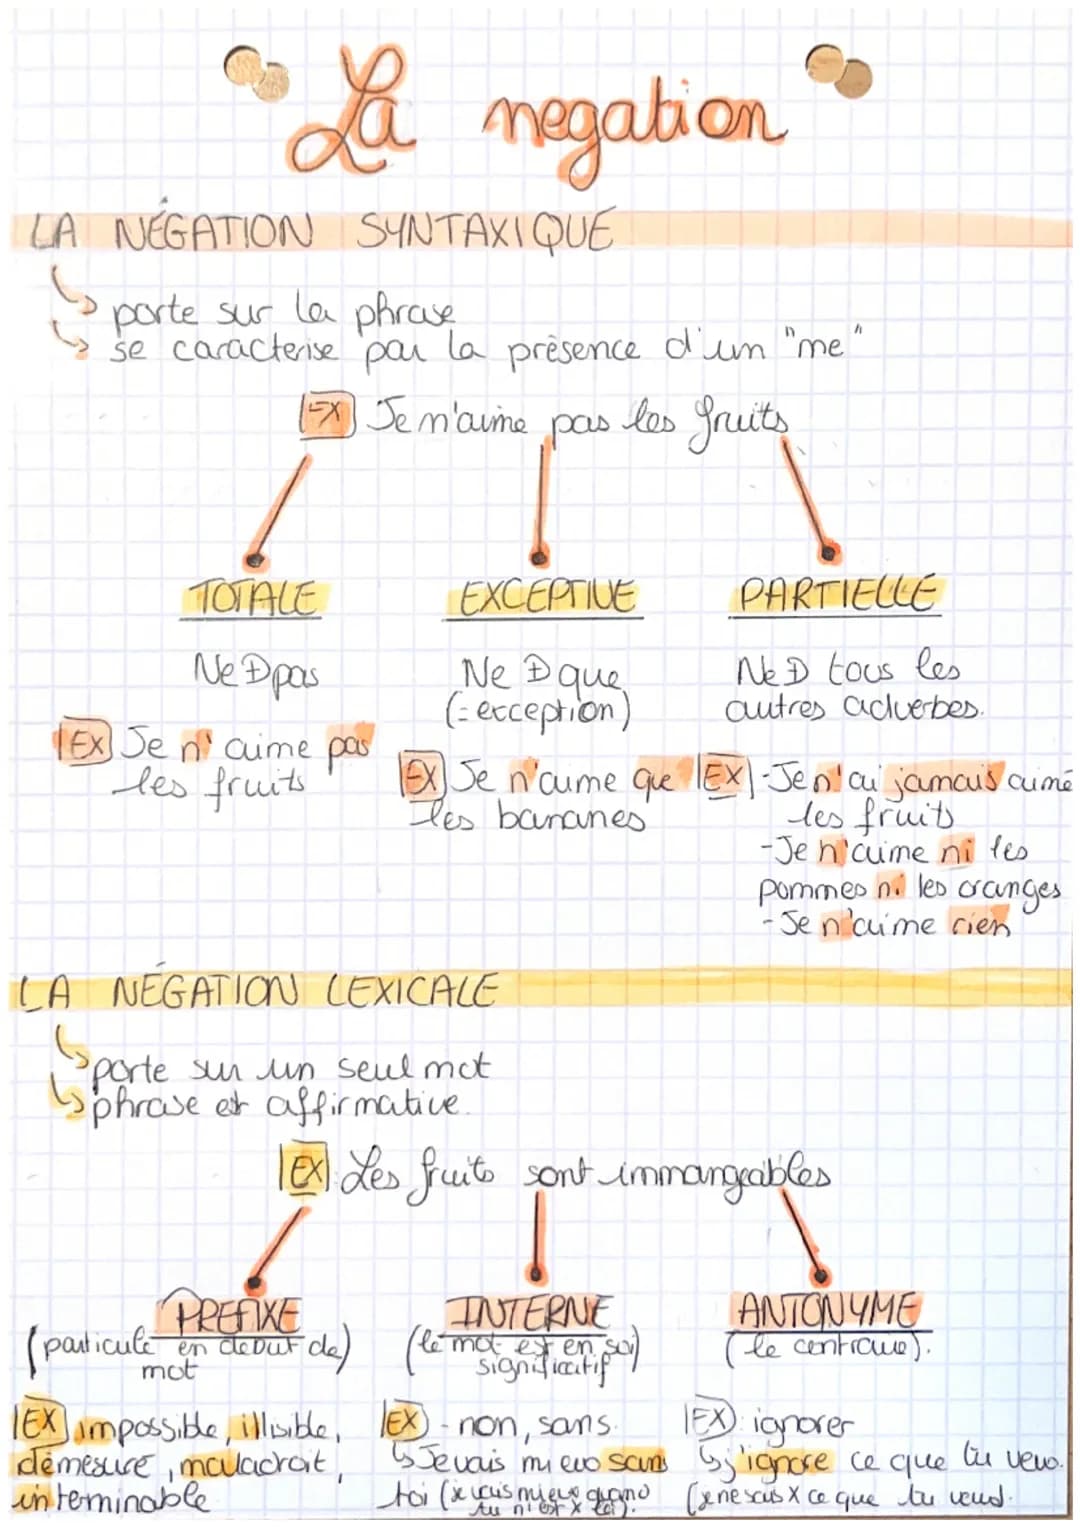 La negation
LA NÉGATION SYNTAXIQUE
porte sur la phrase
se caracterise par la présence d'un "ne"
EX Je n'aime pas les fruits
TOTALE
EXCEPTIVE
PARTIELLE
Ne → pas
Ne → que
(= exception)
Ne → tous les
autres adverbes.
EX Je n'aime pas
les fruits
EX Je n'aime que
les bananes
EX -Je n'ai jamais aimé
les fruits
-Je n'aime ni les
pommes ni les oranges
-Je n'aime rien
LA NÉGATION LEXICALE
porte sur un seul mot
phrase est affirmative.
EX Les fruits sont immangeables
PREFIXE
(particule en debut de)
mot
INTERNE
(le mot est en soi)
significatif
ANTONYME
(le contraire).
EX impossible, illisible,
démesure, maladroit,
interminable
EX - non, sans.
Je vais mieux sans
toi (je vais mieux quand
tu n'es x là).
EX: ignorer
j'ignore ce que tu veux.
(je ne sais x ce que tu veux).